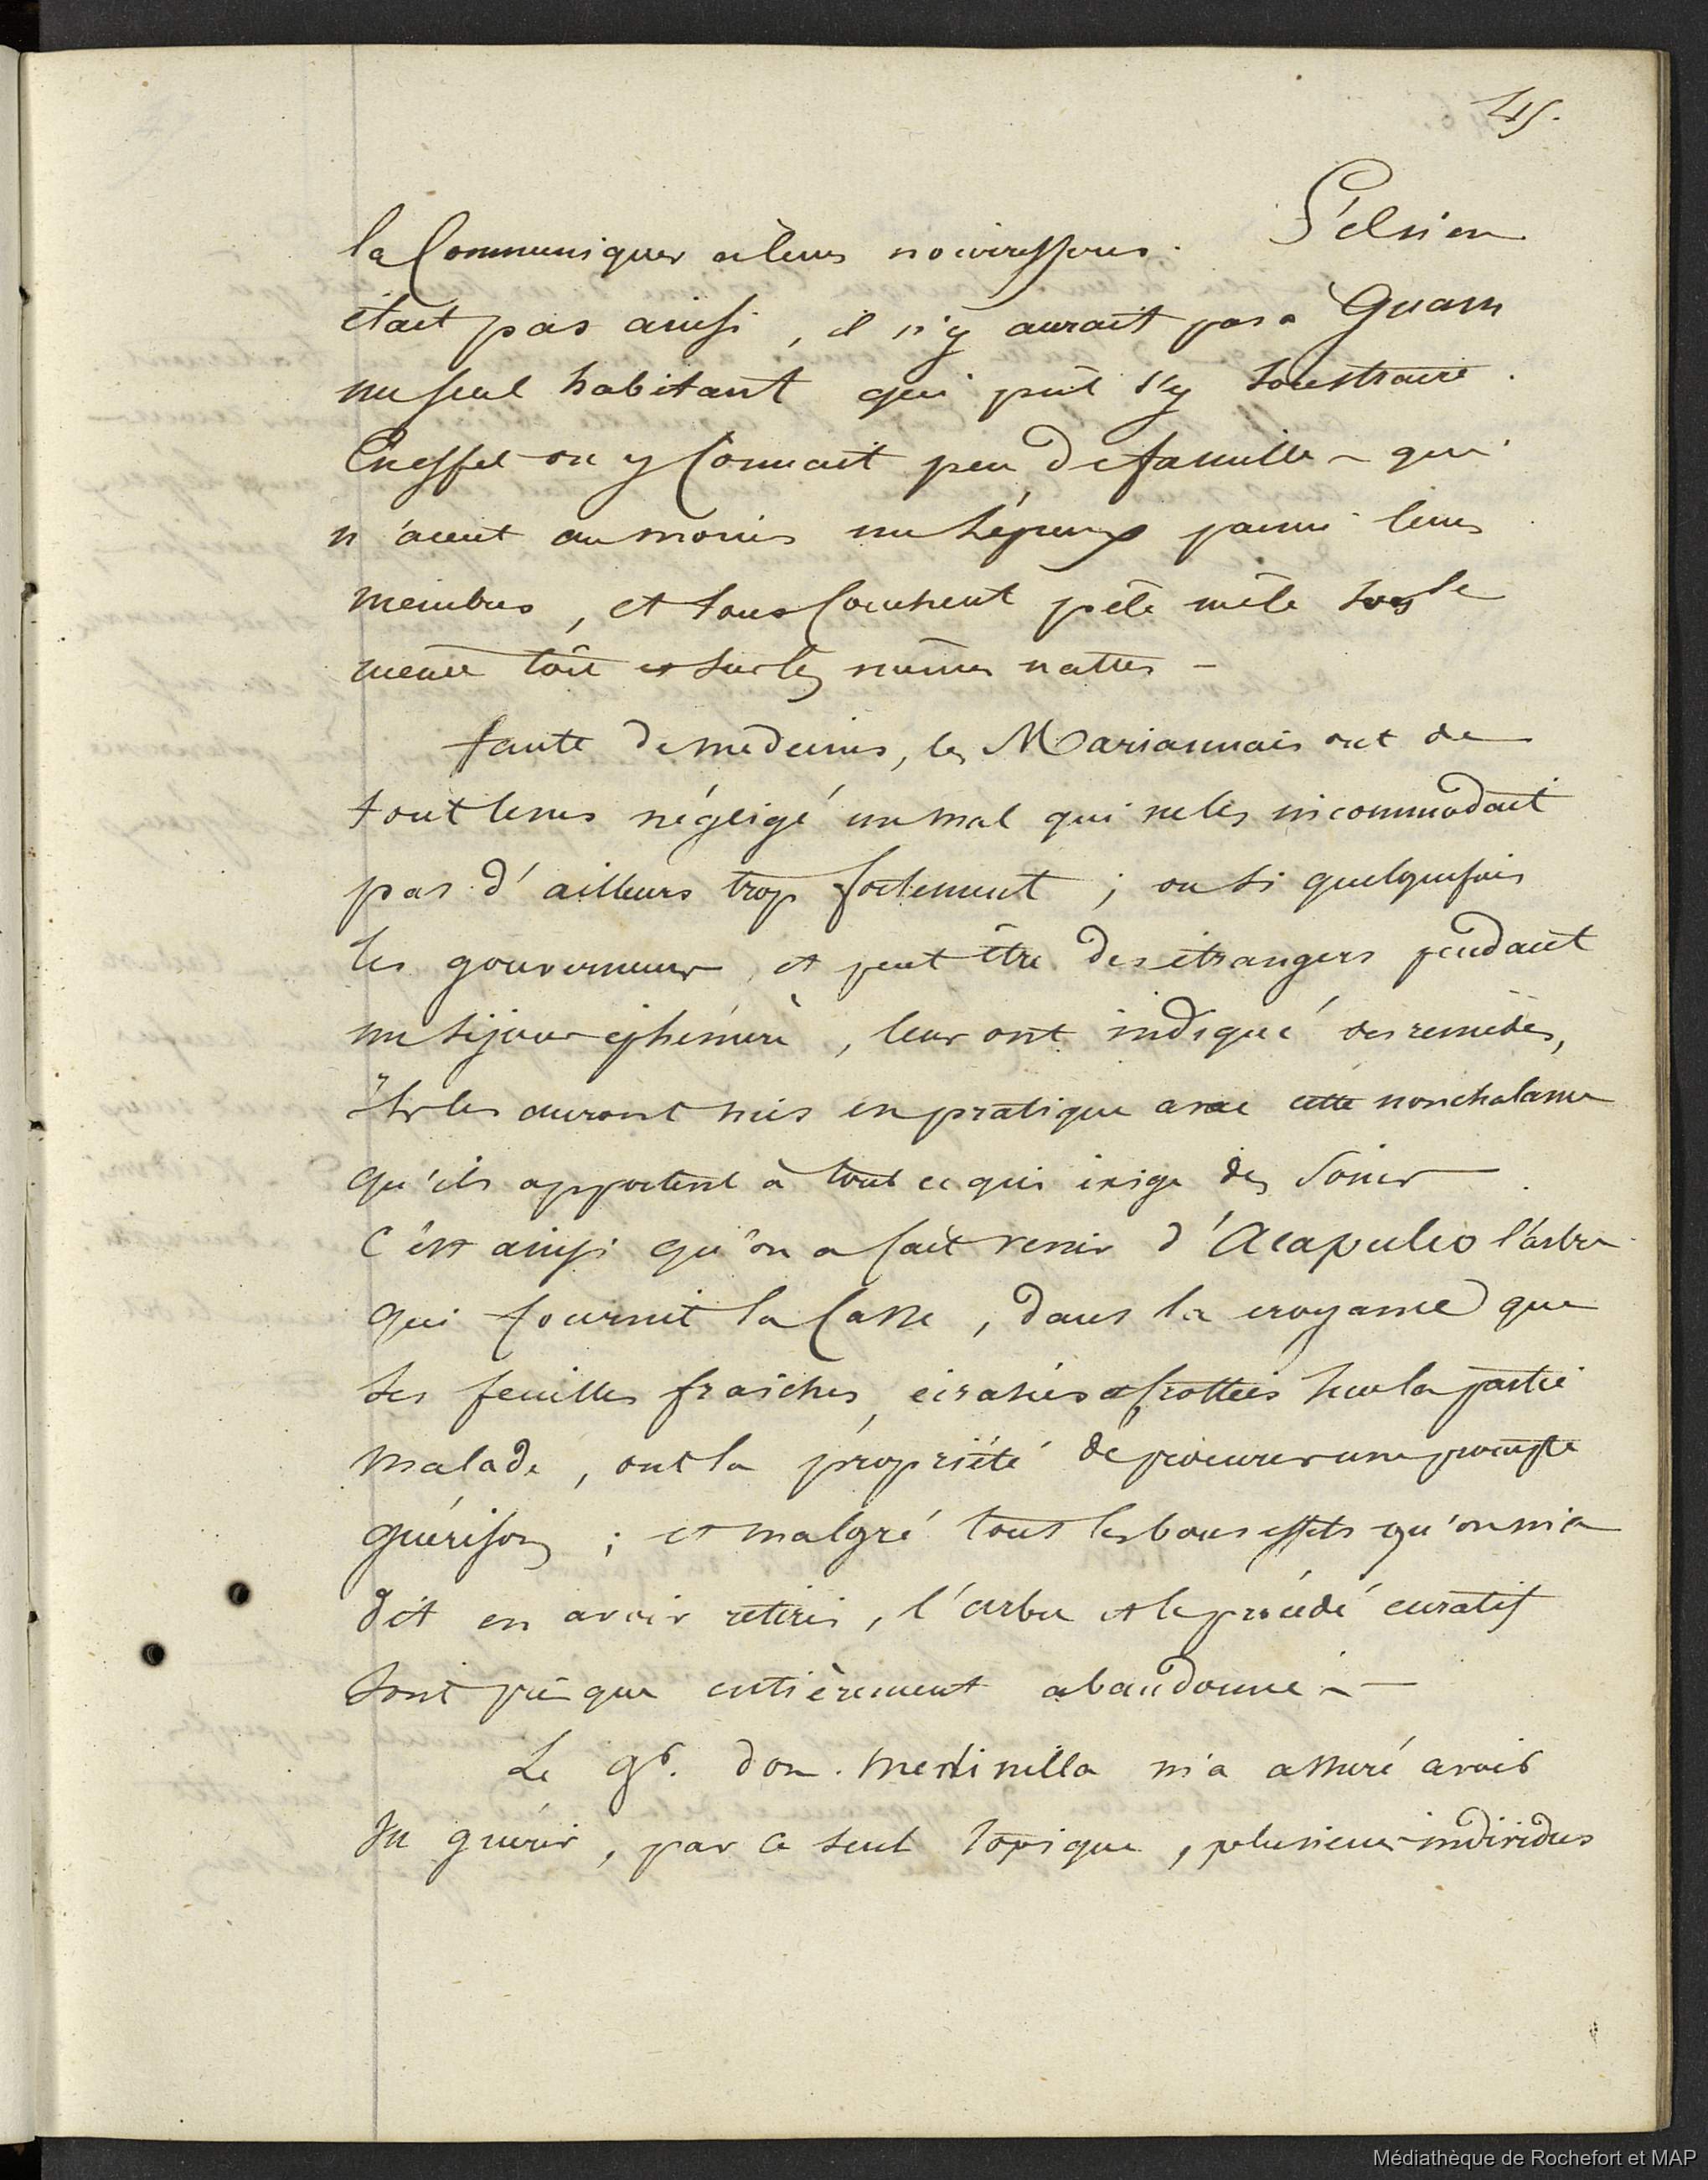 45.
la Communiquer à leurs nourrissons. S'il n'en
était pas ainsi, il n'y aurait pas à Guam
un seul habitant qui pût s'y soustraire.
En effet on y Connait peu de famille - qui
n'aient au moins un Lépreux parmi leurs
membres, et tous Couchent pêle mêle sous le
même toit et sur les mêmes nattes -
faute de médecins, les Mariannais ont de
tout tems négligé un mal qui ne les incommodait
pas d'ailleurs trop fortement ; ou si quelquefois
les gouverneurs, et peut être des étrangers pendant
un séjour éphémère, leur ont indiqué des remèdes,
ils les auront mis en pratique avec cette nonchalance
qu'ils apportent à tout ce qui exige des soins.
C'est ainsi qu'on a fait venir d'Acapulco l'arbre
qui fournit la Casse, dans la croyance que
ses feuilles fraîches, écrasées et frottées sur la partie
malade, ont la propriété de procurer une prompte
guérison ; et malgré tout les bons effets qu'on m'a
dit en avoir retirés, l'arbre et le procédé curatif
sont presque entièrement abandonnés -
Le gr. don. Medinilla m'a assuré avoir
vu guérir, par ce seul topique, plusieurs individus
Médiathèque de Rochefort et MAP